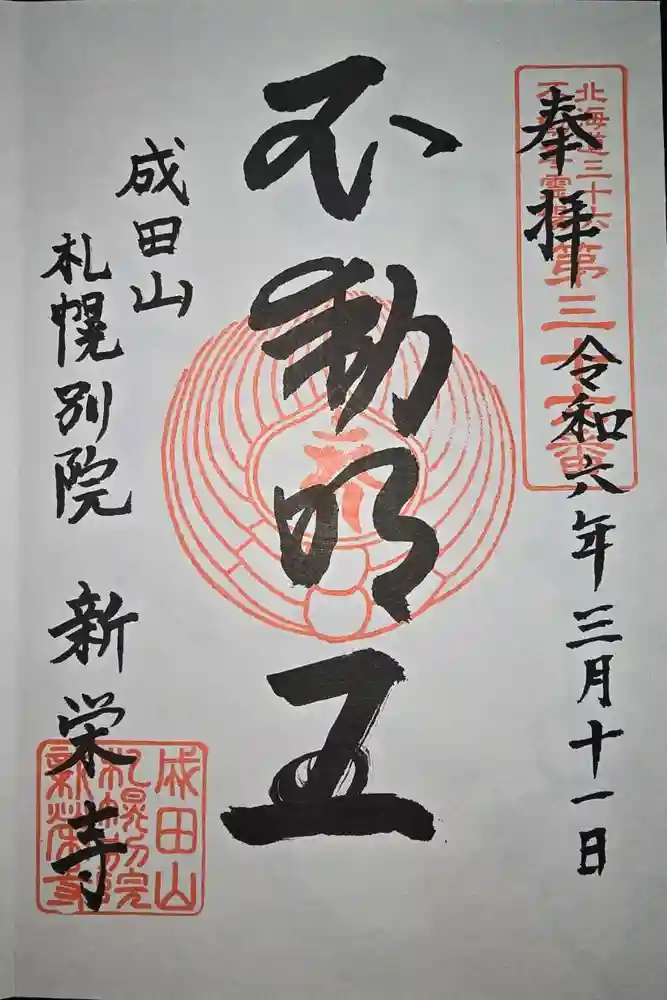 奉拝
令和六年三月十一日
北海道三十六
不動尊霊場
第三十六番
不動明王
成田山
札幌別院
新栄寺
成田山
札幌別院
新榮寺